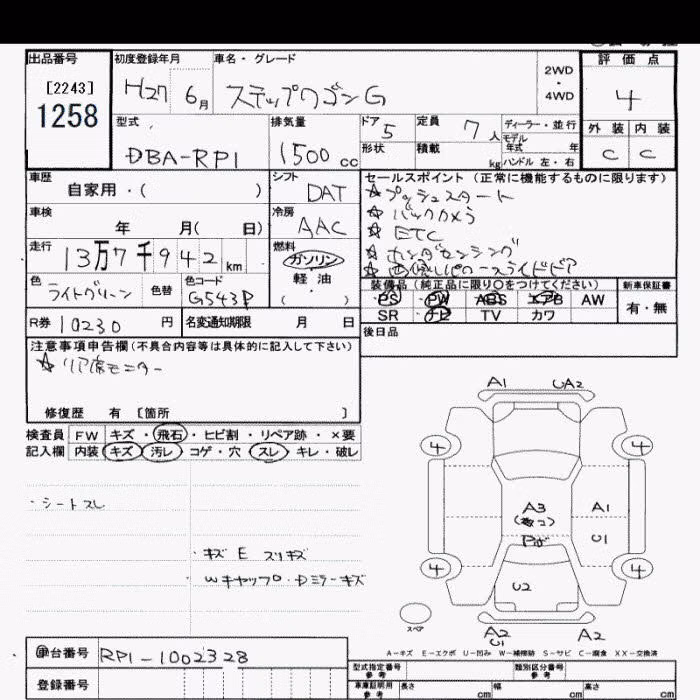 出品番号 初度登録年月 車名・グレード 評価点
[2243]
1258
H27 6月 ステップワゴンG 2WD・4WD 4
型式 排気量 ドア 定員 ディーラー・並行 外装 内装
DBA-RP1 1500cc 5 7人 モデル年式 年 C C
形状 積載 kg ハンドル 左・右
車歴 シフト セールスポイント (正常に機能するものに限ります)
自家用・( ) DAT ☆プッシュスタート
車検 冷房 ☆バックカメラ
年 月( 日) AAC ☆ETC
走行 燃料 ☆ホンダセンシング
13万7千942km ガソリン ☆両側パワースライドドア
軽油
( )
色 色替 色コード 装備品 (純正品に限り○をつけてください) 新車保証書
ライトグリーン G543P PS PW ABS エアB AW 有・無
R券 10230円 名変通知期限 月 日 SR ナビ TV カワ
注意事項申告欄(不具合内容等は具体的に記入して下さい) 後日品
☆リア席モニター
修復歴 有 [箇所 ]
検査員 FW キズ・飛石・ヒビ割・リペア跡・×要
記入欄 内装 キズ 汚レ コゲ・穴 スレ キレ・破レ
・シートスレ
・キズ E スリキズ
Wキャップ・Dミラーキズ
A1 UA2
4 4
A3 A1
U1
4 4
U2
スペア
A2 A2
U1
A-キズ E-エクボ U-凹み W-補修跡 S-サビ C-腐食 XX-交換済
車台番号 RP1-1002328 型式指定番号 参考 類別区分番号 参考
登録番号 車庫証明用 参考 長さ cm 幅 cm 高さ cm